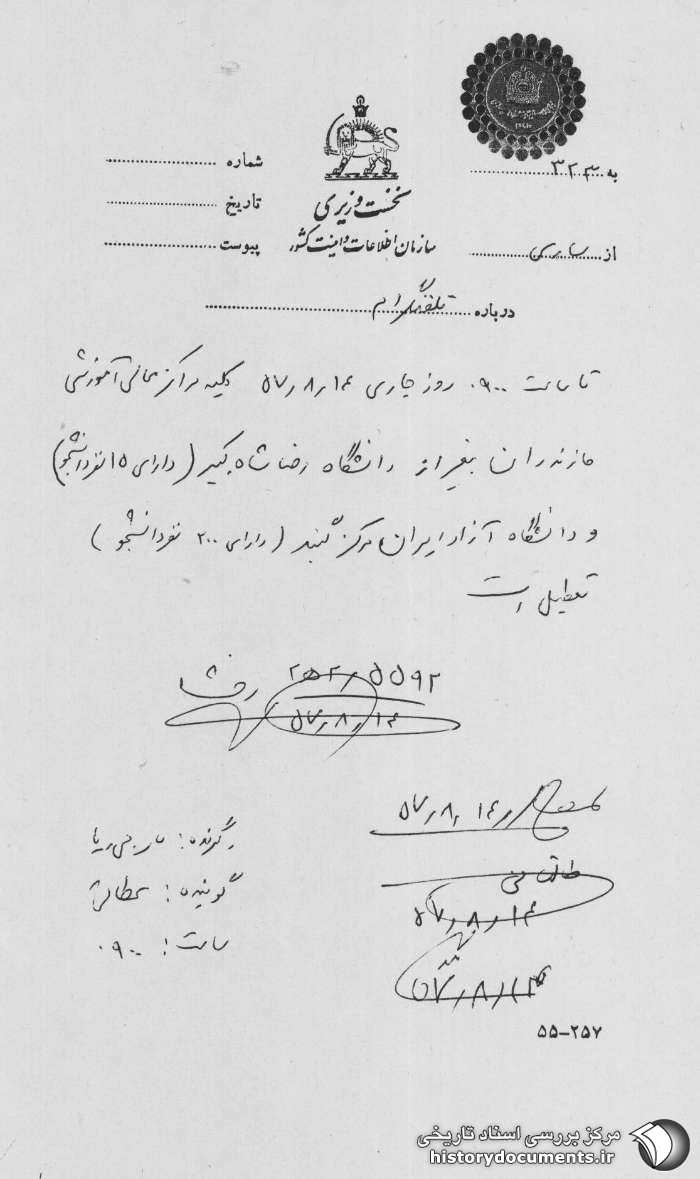 به ۳۲۳
شماره
نخست وزیری
تاریخ
سازمان اطلاعات و امنیت کشور
از ساری
پیوست
درباره تلفنگرام
تا ساعت ۰۹۰۰ روز جاری ۵۷٫۸٫۱۴ کلیه مراکز عالی آموزشی
مازندران بغیر از دانشگاه رضا شاه کبیر (دارای ۱۵ نفر دانشجو)
و دانشگاه آزاد ایران مرکز گنبد (دارای ۲۰۰ نفر دانشجو)
تعطیل است
۵۵۹۲
۵۷٫۸٫۱۴
۵۷٫۸٫۱۴
گیرنده:
گوینده:
۵۷٫۸٫۱۴
ساعت: ۰۹۰۰
۵۷٫۸٫۱۴
۵۵-۲۵۷
مرکز بررسی اسناد تاریخی
historydocuments.ir